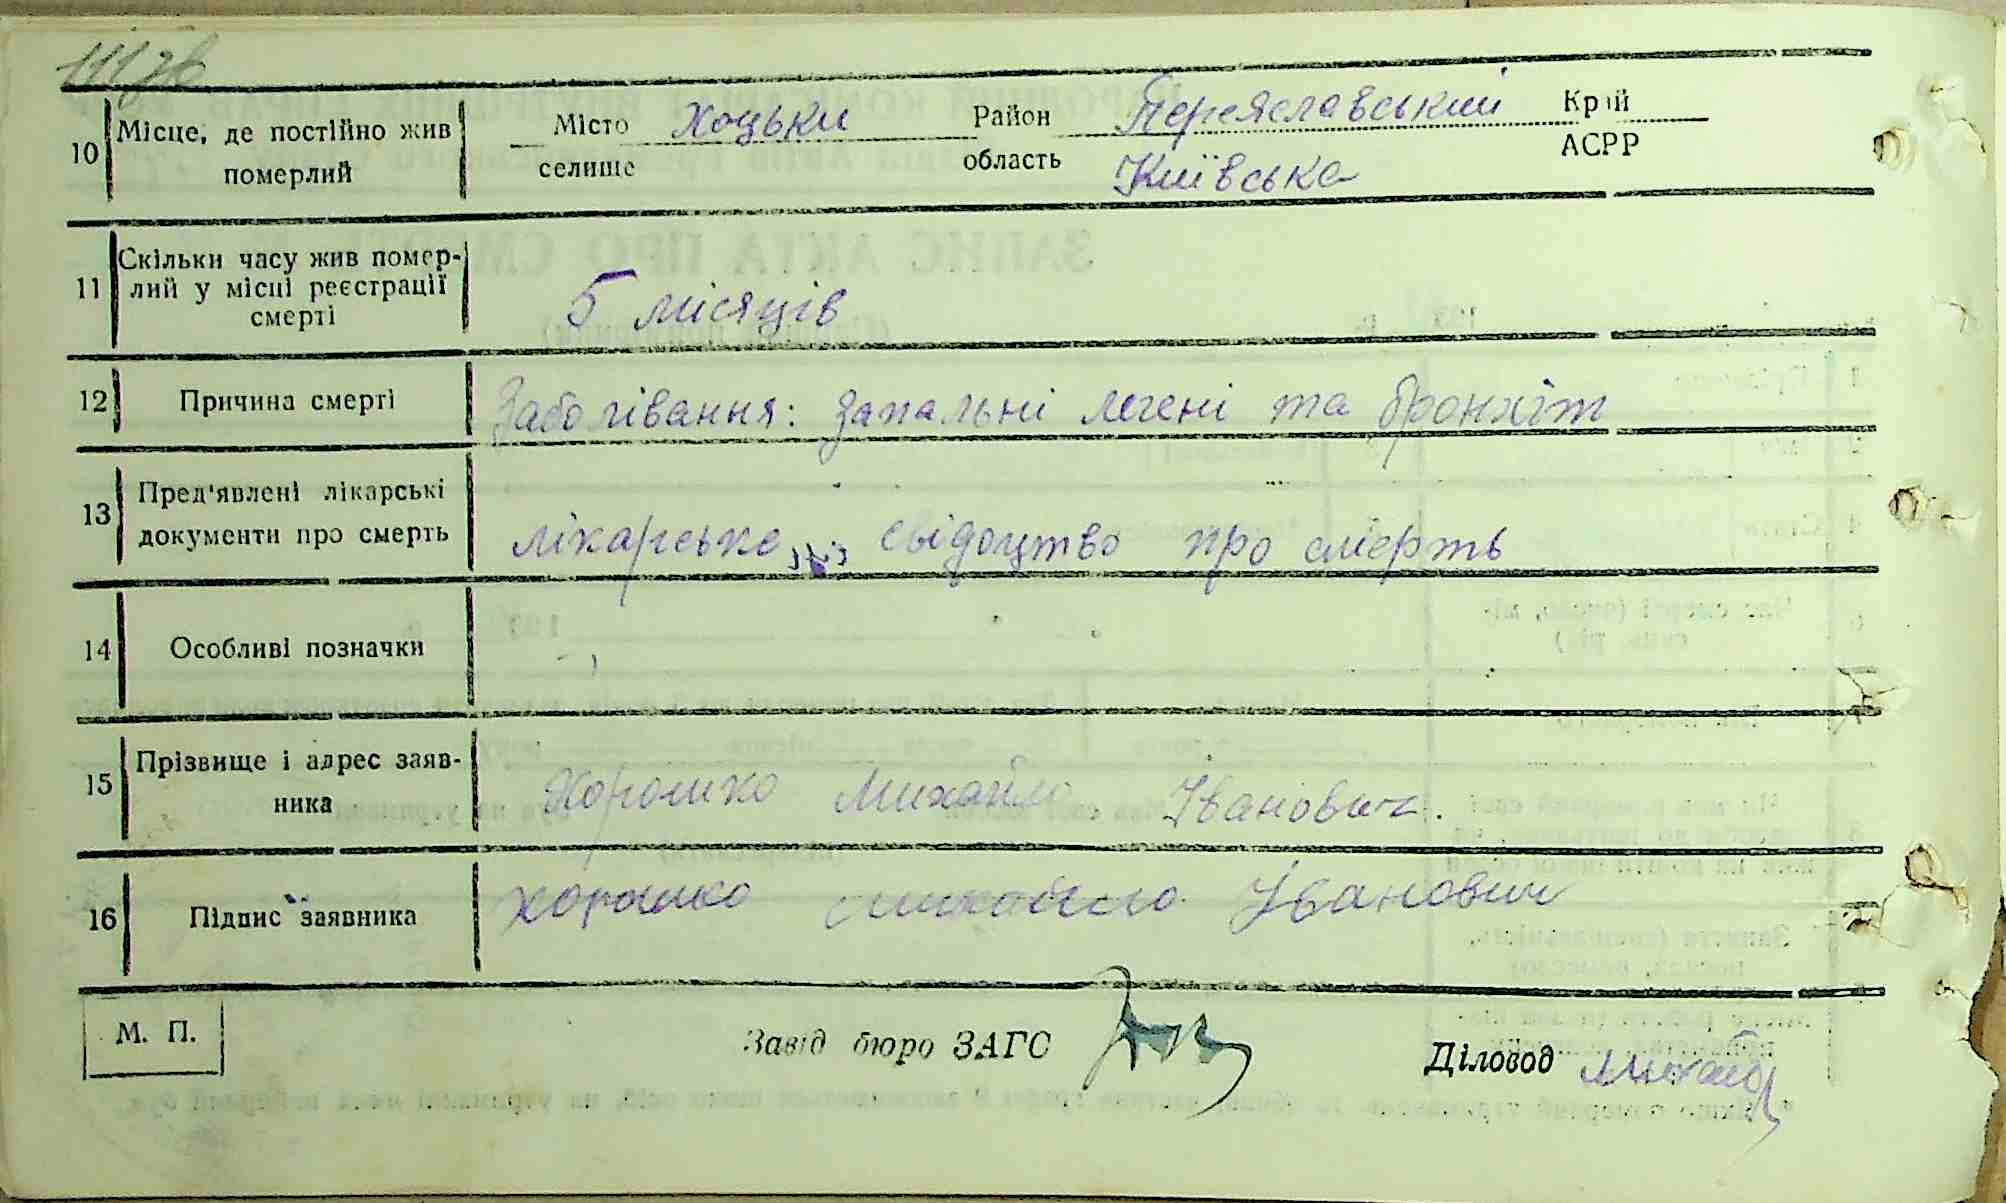 111зв
10 Місце, де постійно жив померлий
Місто Хоцьки Район Переяславський Край
селище область Київська АСРР
11 Скільки часу жив помер-
лий у місці реєстрації
смерті
5 місяців
12 Причина смерті
Заболівання: запальні легені та бронхіт
13 Пред'явлені лікарські
документи про смерть
лікарське свідоцтво про смерть
14 Особливі позначки
15 Прізвище і адрес заяв-
ника
Хорошко Михайло Іванович.
16 Підпис заявника
Хорошко Михайло Іванович
М. П.
Завід бюро ЗАГС
Діловод